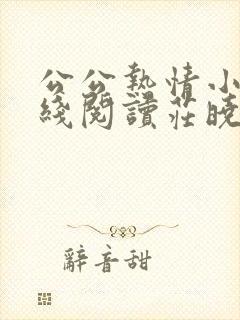 公公熱情小
綫閱讀莊曉
辭音甜